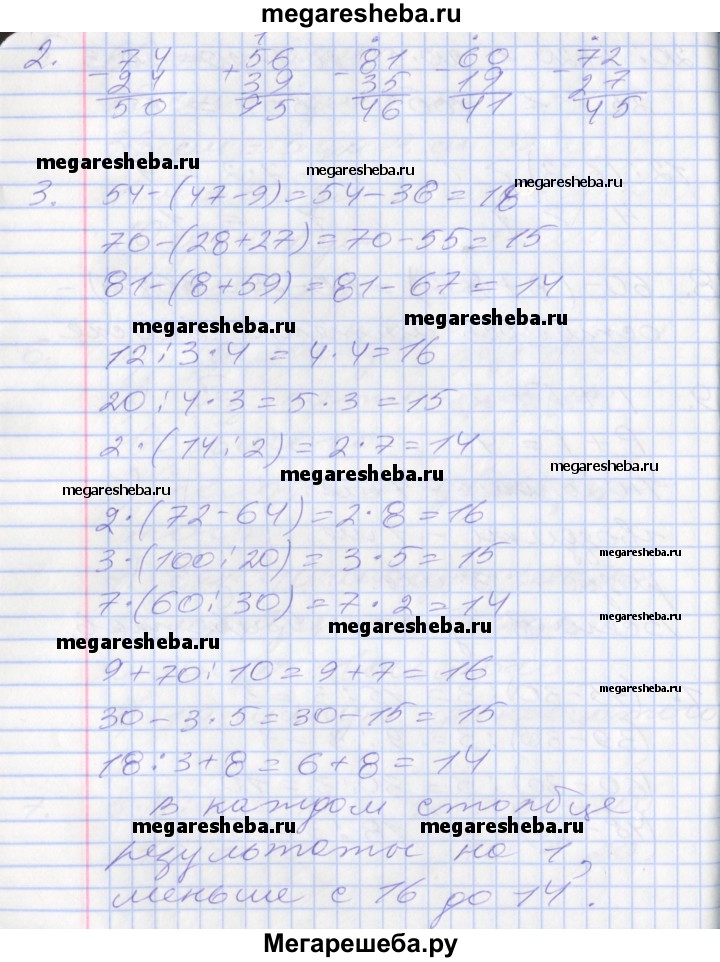 megaresheba.ru
2. 74 56 81 60 72
- 24 + 39 - 35 - 19 - 27
50 95 46 41 45
megaresheba.ru megaresheba.ru megaresheba.ru
3. 54-(47-9)=54-38=18
70-(28+27)=70-55=15
81-(8+59)=81-67=14
megaresheba.ru megaresheba.ru
12:3·4=4·4=16
20:4·3=5·3=15
2·(14:2)=2·7=14
megaresheba.ru megaresheba.ru
megaresheba.ru
2·(72-64)=2·8=16
3·(100:20)=3·5=15
megaresheba.ru
7·(60:30)=7·2=14
megaresheba.ru megaresheba.ru megaresheba.ru
9+70:10=9+7=16
megaresheba.ru
30-3·5=30-15=15
18:3+8=6+8=14
в каждом столбце
megaresheba.ru megaresheba.ru
результаты на 1
меньше с 16 до 14.
Мегарешеба.ру